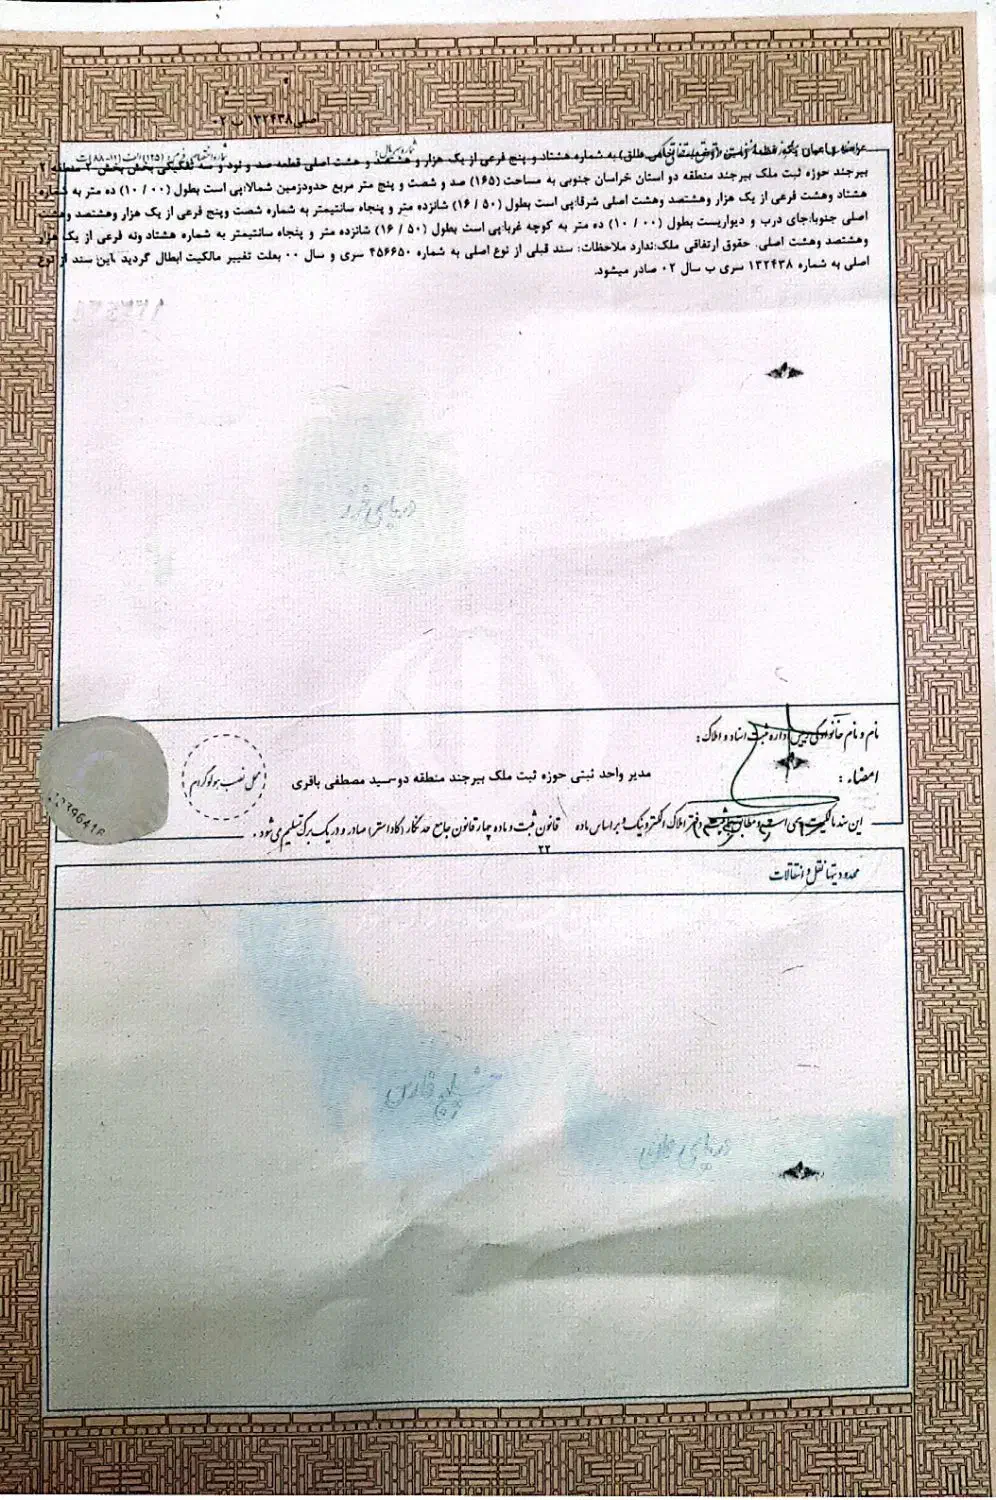 اصلی ۱۳۲۴۳۸ ب ۰۲
به شماره هشتاد و پنج فرعی از یک هزار و هشتصد و هشت اصلی قطعه صد و نود و سه تفکیکی بخش بخش ۲ منطقه ۲
بیرجند حوزه ثبت ملک بیرجند منطقه دو استان خراسان جنوبی به مساحت (۱۶۵) صد و شصت و پنج متر مربع حدودزمین شمالا:پی است بطول (۰۰ / ۱۰) ده متر به شماره
هشتاد وهشت فرعی از یک هزار وهشتصد وهشت اصلی شرقا:پی است بطول (۵۰ / ۱۶) شانزده متر و پنجاه سانتیمتر به شماره شصت وپنج فرعی از یک هزار وهشتصد وهشت
اصلی جنوبا:جای درب و دیواریست بطول (۰۰ / ۱۰) ده متر به کوچه غربا:پی است بطول (۵۰ / ۱۶) شانزده متر و پنجاه سانتیمتر به شماره هشتاد ونه فرعی از یک هزار
وهشتصد وهشت اصلی. حقوق ارتفاقی ملک:ندارد ملاحظات: سند قبلی از نوع اصلی به شماره ۴۵۶۶۵۰ سری و سال ۰۰ بعلت تغییر مالکیت ابطال گردید .این سند از نوع
اصلی به شماره ۱۳۲۴۳۸ سری ب سال ۰۲ صادر میشود.
دریای خزر
نام و نام خانوادگی رییس اداره ثبت اسناد و املاک :
امضاء :
مدیر واحد ثبتی حوزه ثبت ملک بیرجند منطقه دو-سید مصطفی باقری
محل نصب هولوگرام
این سند مالکیت دفتر املاک الکترونیک و بر اساس ماده ۲۲ قانون ثبت و ماده چهار قانون جامع حدنگار (کاداستر) صادر و در یک برگ تسلیم می شود .
محدودیتها نقل و انتقالات
خلیج فارس
دریای عمان